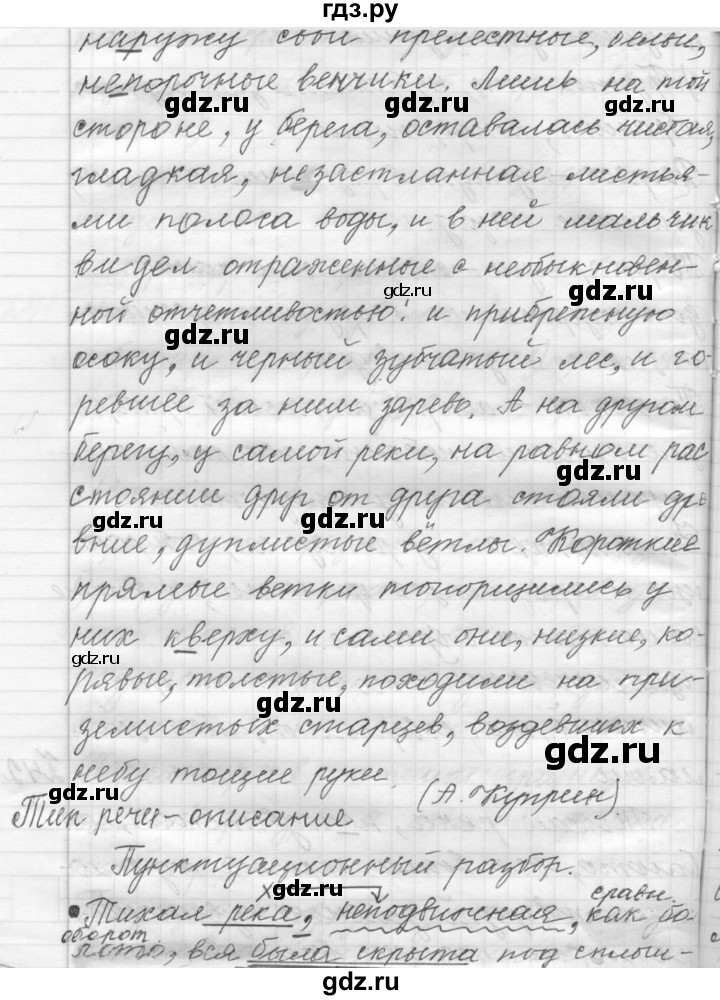 гдз.ру
наружу свои прелестные, белые,
непорочные венчики. Лишь на той
gdz.ru gdz.ru gdz.ru
стороне, у берега, оставалась чистая,
гладкая, незастланная листья-
ми полоса воды, и в ней мальчик
видел отраженные с необыкновен-
gdz.ru gdz.ru
ной отчетливостью: и прибрежную
gdz.ru
осоку, и черный зубчатый лес, и го-
ревшее за ним зарево. А на другом
берегу, у самой реки, на равном рас
gdz.ru
стоянии друг от друга стояли дре
gdz.ru gdz.ru
вние, дуплистые вётлы. Короткие
прямые ветки топорщились у
них кверху, и сами они, низкие, ко-
gdz.ru
рявые, толстые, походили на при-
gdz.ru
земистых старцев, воздевших к
gdz.ru
небу тощие руки.
gdz.ru
(А. Куприн).
Тип речи - описание
Пунктуационный разбор.
х gdz.ru сравн.
Тихая река, неподвижная, как бо-
оборот
лото, вся была скрыта под сплош-
gdz.ru gdz.ru